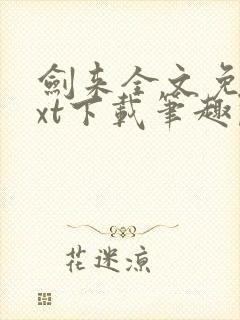 劍来全文免
xt下載筆趣
花迷涼